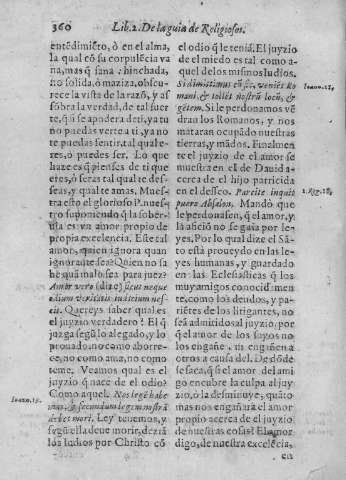 360 Lib. 2. De la guia de Religiosos.
entēdimiēto, ò en el alma,
la qual cō su corpulēcia va
na, mas q̄ sana : hinchada,
no solida, ò maziza, obscu-
rece la vista de la razō, y as
sōbra la verdad, de tal suer
te, q̄ si se apodera deti, ya tu
no puedas verte a ti, ya no
te puedas sentir, tal qual e-
res, o puedes ser. Lo que
haze es q̄ pienses de ti que
eres, o seras tal qual te des-
seas, y qual te amas. Mues-
tra esto el glorioso P. nues-
tro suponiendo q̄ la sober-
uia es vn amor propio de
propia excelencia. Este tal
amor, quien ignora quan
ignorante sea? Quien no sa
be quā malo sea para juez?
Amor vero (dize) sicut neque
odium veritatis iudicium nes-
cit. Quereys saber qual es
el juyzio verdadero? El q̄
juzga segū lo alegado, y lo
prouado, no como aborre-
ce, no como ama, no como
teme. Veamos qual es el
juyzio q̄ nace de el odio?
Ioann. 19.
Como aquel. Nos legē habe
mus, & secundum legem nostrā
debet mori. Ley tenemos, y
segū ella deue morir, dezīā
los Iudios por Christo cō
el odio q̄ le teniā. El juyzio
del miedo es tal como a-
quel de los mismos Iudios.
Ioann. 11.
Si dimittimus eū sic, veniēt Ro
mani, & tollēt nostrū locū, &
gētem. Si le perdonamos vē
dran los Romanos, y nos
mataran ocupādo nuestras
tierras, y mādos. Finalmen
te el juyzio de el amor se
muestra en el de Dauid a-
cerca de el hijo parricida
en el desseo. Parcite inquit
2. Reg. 18.
puero Absalon. Mandò que
le perdonassen, q̄ el amor, y
la aficiō no se guia por le-
yes. Por lo qual dize el Sā-
to està proueydo en las le-
yes humanas, y guardado
en las Eclesiasticas q̄ los
muy amigos conocidamen
te, como los deudos, y pa-
riētes de los litigantes, no
seā admitidos al juyzio, por
q̄ el amor de los suyos no
los engañe. ni engañen a
otros a causa del. De dōde
se saca, q̄ si el amor del ami
go encubre la culpa al juy
zio, o la desminuye, quāto
mas nos engañarà el amor
propio acerca de el juyzio
de nuestras cosas? El amor
digo, de nuestra excelēcia,